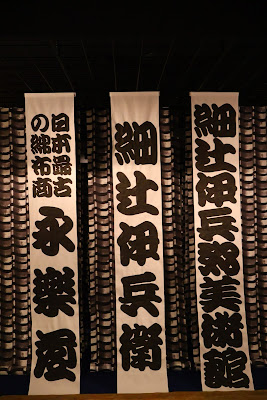 細辻伊兵衛美術館
細辻伊兵衛
日本最古
の綿布商
永樂屋